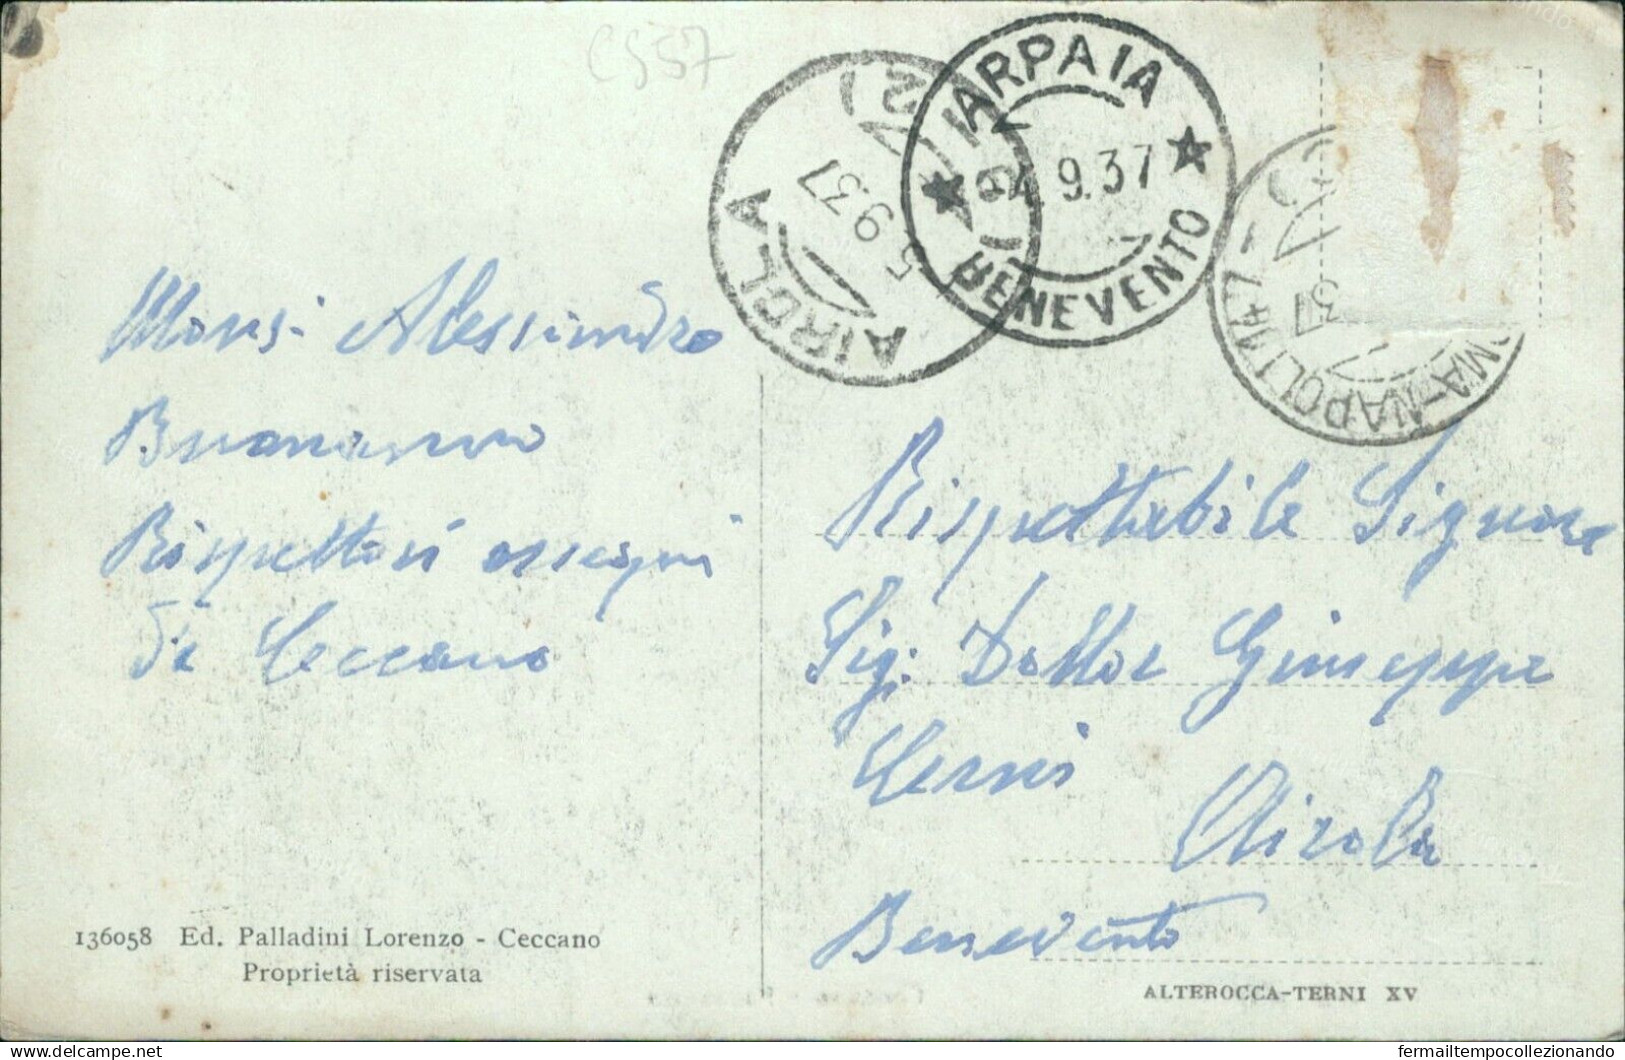 CS57
ARPAIA
4.9.37
BENEVENTO
AIROLA
5 9 37
MA-NAPOLI 147
37
Mons. Alessandro
Buonanno
Rispettosi ossequi
da Ceccano
Rispettabile Signore
Sig. Dottor Giuseppe
Cerni
Airola
Benevento
136058 Ed. Palladini Lorenzo - Ceccano
Proprietà riservata
ALTEROCCA-TERNI XV
www.delcampe.net
fermailtempocollezionando